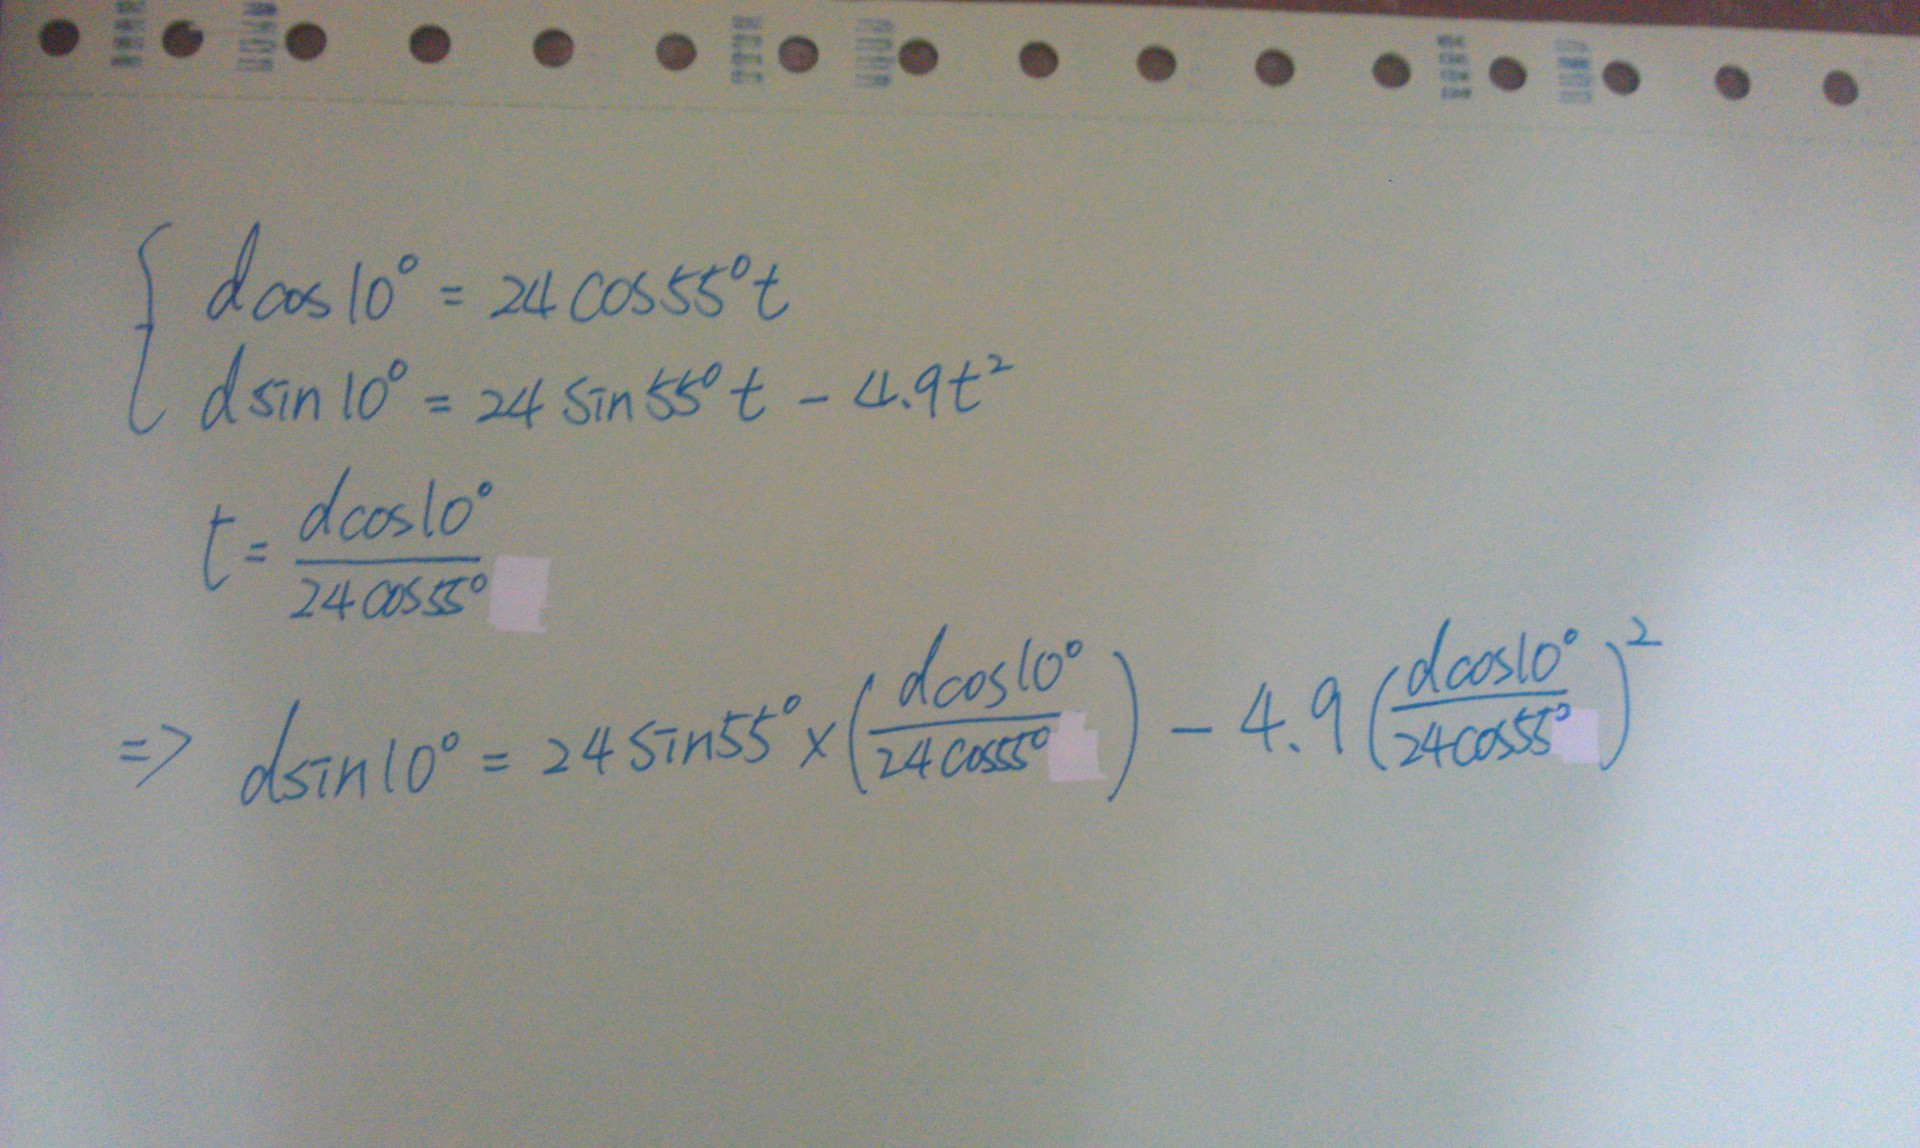 d cos10° = 24 cos55° t
d sin10° = 24 sin55° t − 4.9t²
t = dcos10° / 24cos55°
=> dsin10° = 24 sin55° × (dcos10° / 24cos55°) − 4.9 (dcos10° / 24cos55°)²